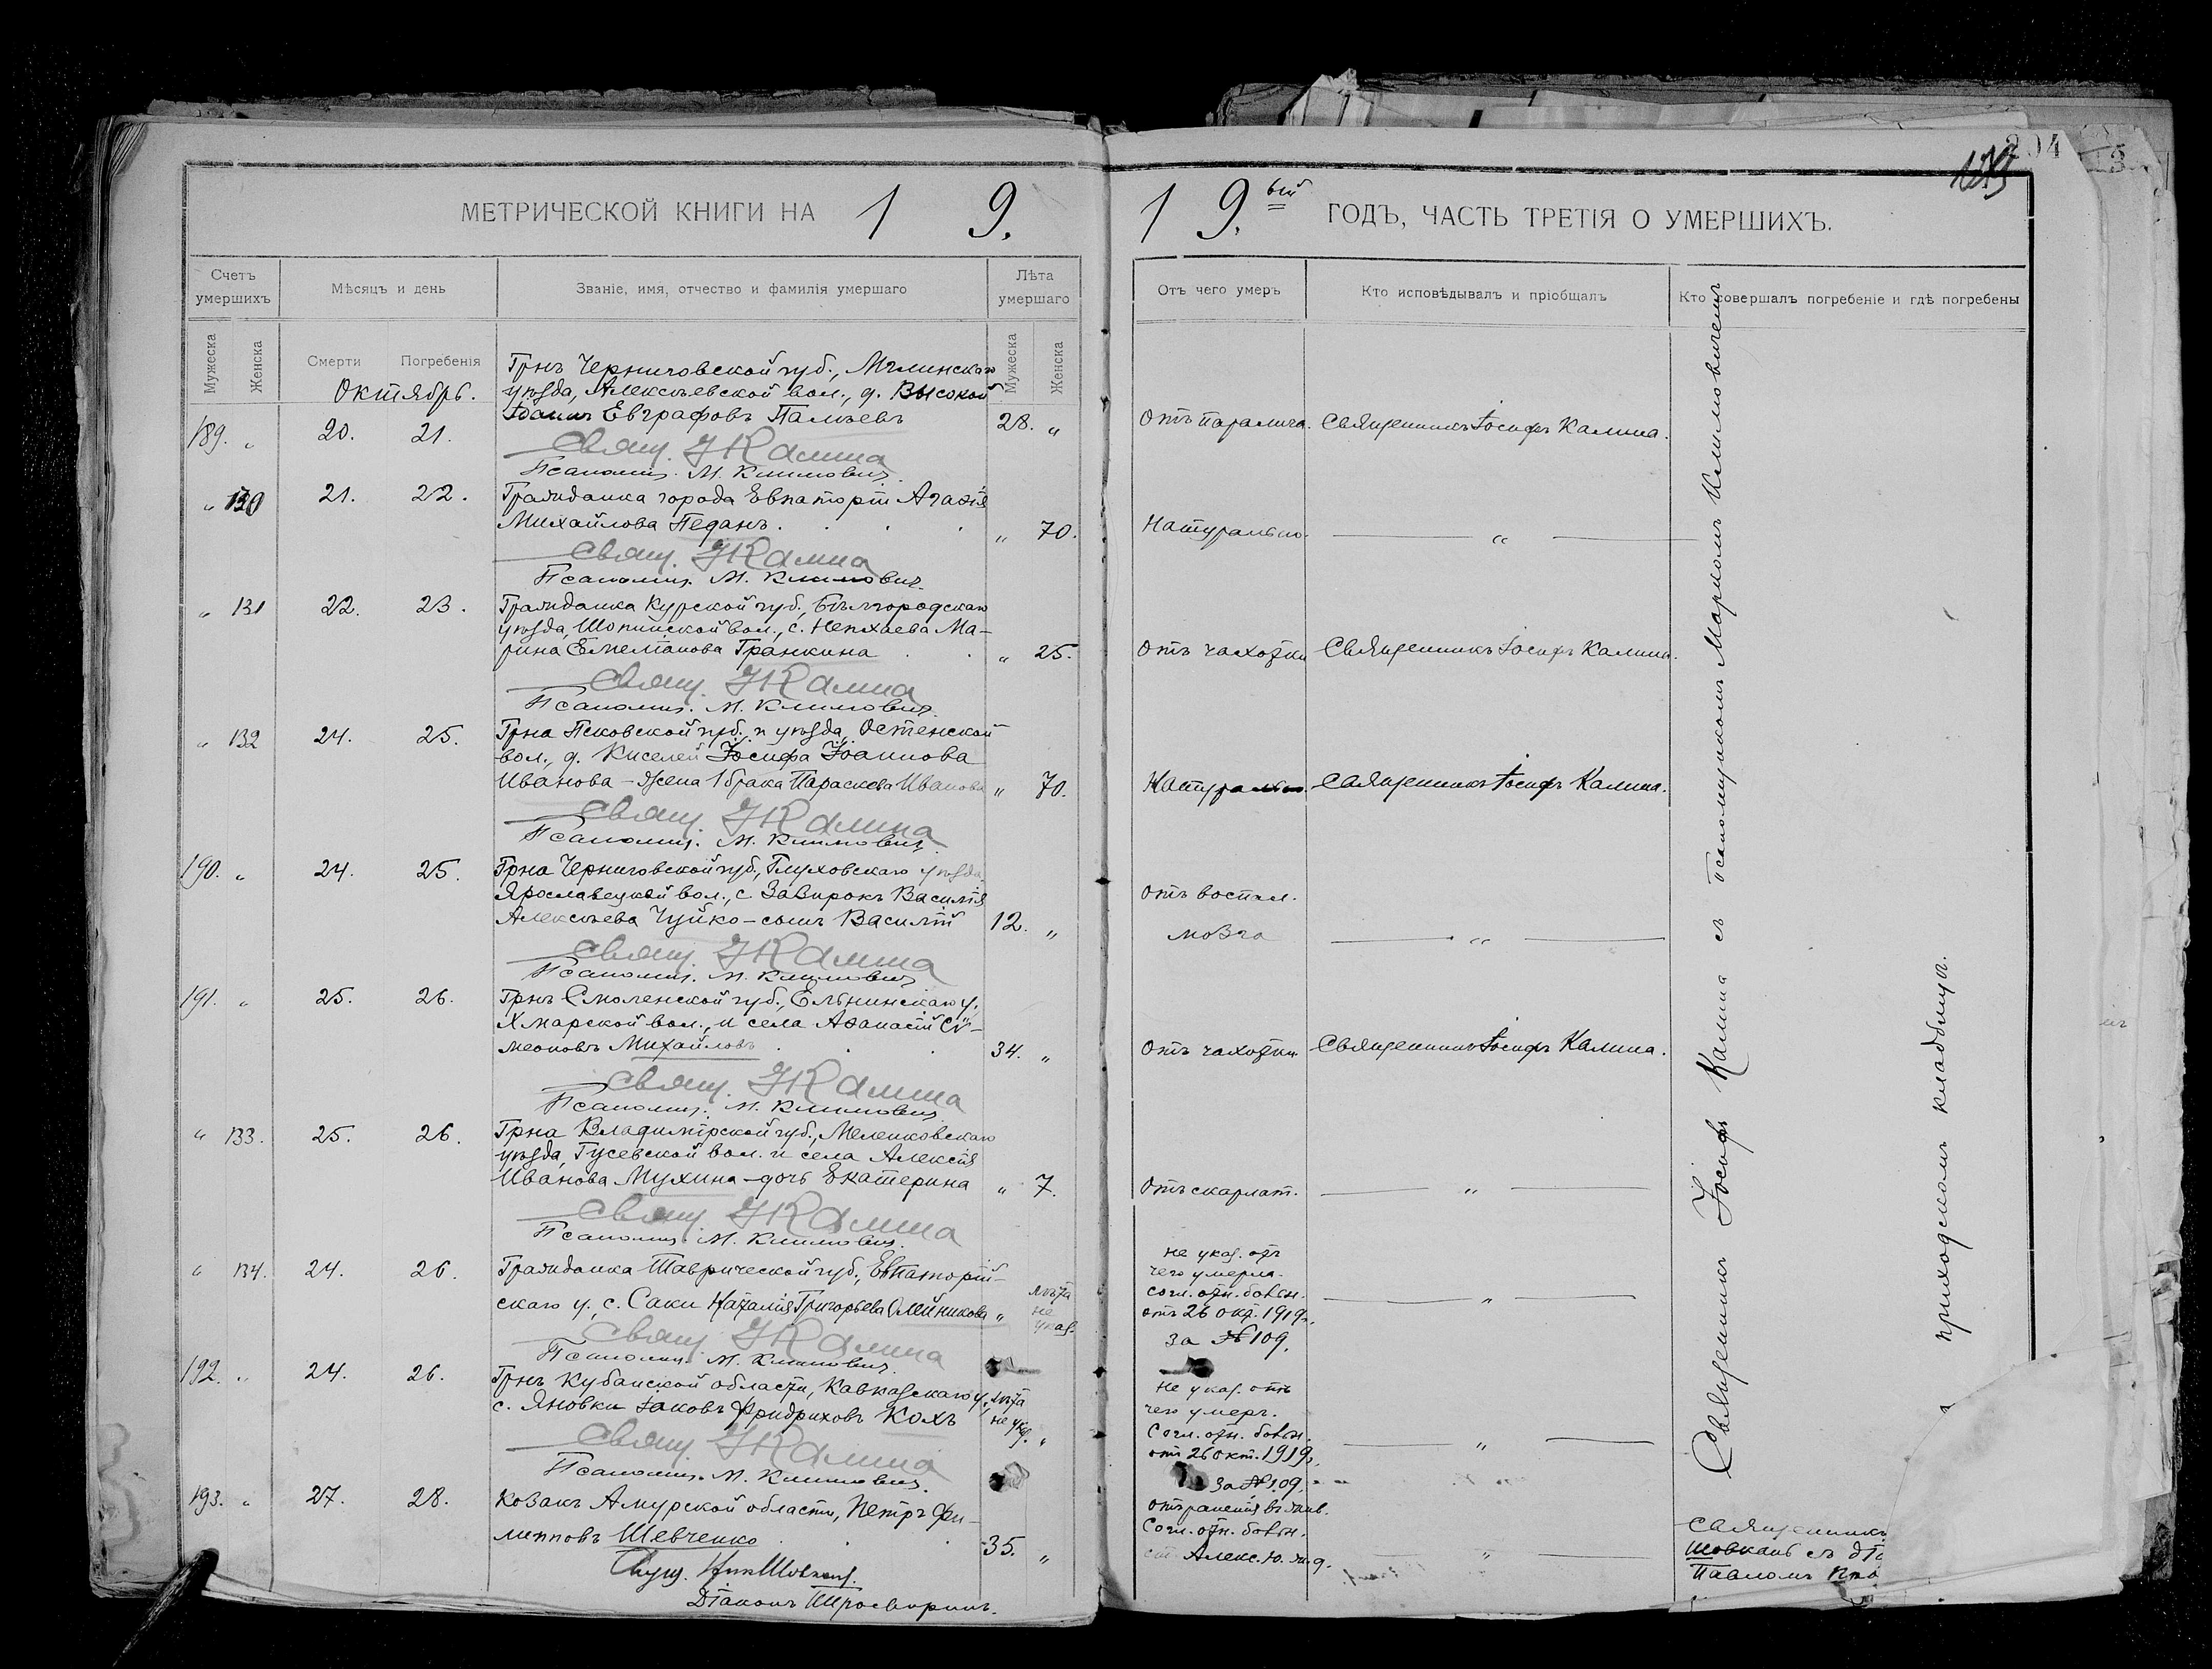 204
МЕТРИЧЕСКОЙ КНИГИ НА 1 9.
1 9.ый ГОДЪ, ЧАСТЬ ТРЕТІЯ О УМЕРШИХЪ.
Счетъ умершихъ
Мѣсяцъ и день
Званіе, имя, отчество и фамилія умершаго
Лѣта умершаго
Отъ чего умеръ
Кто исповѣдывалъ и пріобщалъ
Кто совершалъ погребеніе и гдѣ погребены
Мужеска
Женска
Смерти
Погребенія
Мужеска
Женска
Октябрь.
Грнъ Черниговской губ., Мглинскаго
уѣзда, Алексѣевской вол., д. Высокой
189. „ 20. 21. Іоаннъ Евграфовъ Палѣевъ 28. „ Отъ паралича. Священникъ Іосифъ Калина.
Свящ. І Калина
Псаломщ. М. Климович.
„ 130 21. 22. Гражданка города Евпаторіи Агафія
Михайлова Педанъ. „ 70. Натурально. „
Свящ. І Калина
Псаломщ. М. Климович.
„ 131 22. 23. Гражданка Курской губ., Бѣлгородскаго
уѣзда, Шопинской вол., с. Непхаева Ма-
рина Емеліанова Гранкина „ 25. Отъ чахотки Священникъ Іосифъ Калина.
Свящ. І Калина
Псаломщ. М. Климович.
„ 132 24. 25. Грна Псковской губ. и уѣзда, Остенской
вол., д. Киселей Іосифа Іоаннова
Иванова - жена 1 брака Параскева Иванова „ 70. Натурально. Священникъ Іосифъ Калина.
Свящ. І Калина
Псаломщ. М. Климович.
190. „ 24. 25. Грна Черниговской губ., Глуховскаго уѣзда,
Ярославецкой вол., с. Завирокъ Василія
Алексѣева Чуйко - сынъ Василій 12. „ Отъ воспал.
мозга „
Свящ. І Калина
Псаломщ. М. Климович.
191. „ 25. 26. Грнъ Смоленской губ., Ельнинскаго у.
Хмарской вол., и села Афанасій Сѵ-
меоновъ Михайловъ 34. „ Отъ чахотки. Священникъ Іосифъ Калина.
Свящ. І Калина
Псаломщ. М. Климович.
„ 133. 25. 26. Грна Владимірской губ., Меленковскаго
уѣзда, Гусевской вол. и села Алексія
Иванова Мухина - дочь Екатерина „ 7. Отъ скарлат. „
Свящ. І Калина
Псаломщ. М. Климович.
„ 134. 24. 26. Гражданка Таврической губ., Евпаторій-
скаго у., с. Саки Наталія Григорьева Олейникова „ лѣта не указ.
не указ. отъ
чего умерла.
согл. отн. больн.
отъ 26 окт. 1919 г.
за № 109. „
Свящ. І Калина
Псаломщ. М. Климович.
192. „ 24. 26. Грнъ Кубанской области, Кавказскаго у., лѣта
с. Яновки Іаковъ Фридриховъ Кохъ не указ. „
не указ. отъ
чего умеръ.
Согл. отн. больн.
отъ 26 окт. 1919 г.
за № 109. „
Свящ. І Калина
Псаломщ. М. Климович.
193. „ 27. 28. Козакъ Амурской области, Петръ Фи-
липповъ Шевченко 35. „
Отъ раненія въ жив.
Согл. отн. больн.
Алекс. „
Діаконъ
Священникъ Іосифъ Калина съ псаломщикомъ Маркомъ Климовичемъ
приходскомъ кладбищѣ.
Священникъ
Шовкань съ дѣ
Павломъ